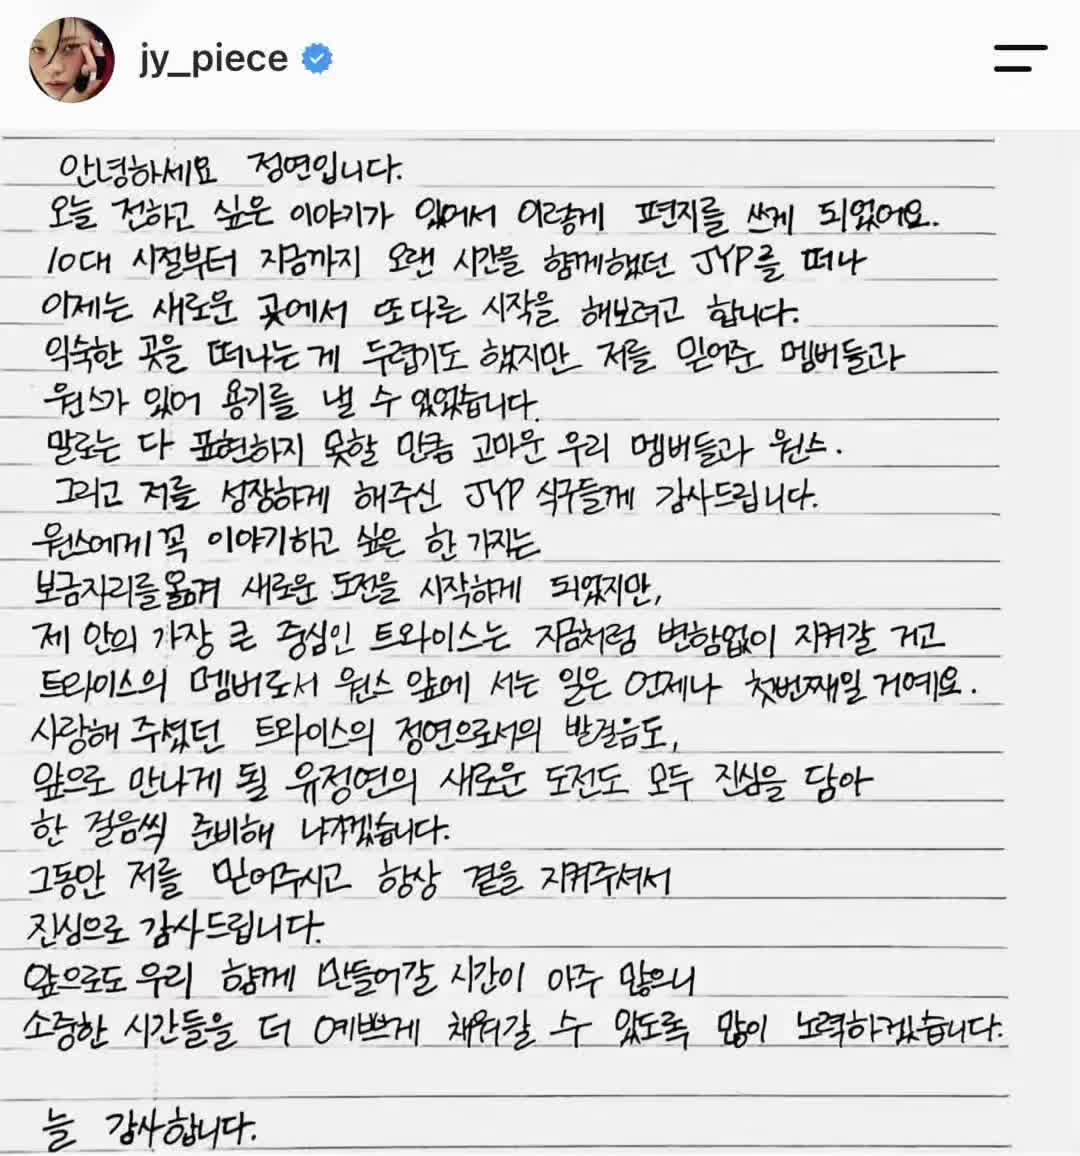 jy_piece
안녕하세요 정연입니다.
오늘 전하고 싶은 이야기가 있어서 이렇게 편지를 쓰게 되었어요.
10대 시절부터 지금까지 오랜 시간을 함께했던 JYP를 떠나
이제는 새로운 곳에서 또다른 시작을 해보려고 합니다.
익숙한 곳을 떠나는게 두렵기도 했지만 저를 믿어준 멤버들과
원스가 있어 용기를 낼 수 있었습니다.
말로는 다 표현하지 못할 만큼 고마운 우리 멤버들과 원스.
그리고 저를 성장하게 해주신 JYP 식구들께 감사드립니다.
원스에게 꼭 이야기하고 싶은 한 가지는
보금자리를 옮겨 새로운 도전을 시작하게 되었지만,
제 안의 가장 큰 중심인 트와이스는 지금처럼 변함없이 지켜갈 거고
트와이스의 멤버로서 원스 앞에 서는 일은 언제나 첫번째일 거예요.
사랑해 주셨던 트와이스의 정연으로서의 발걸음도,
앞으로 만나게 될 유정연의 새로운 도전도 모두 진심을 담아
한 걸음씩 준비해 나가겠습니다.
그동안 저를 믿어주시고 항상 곁을 지켜주셔서
진심으로 감사드립니다.
앞으로도 우리 함께 만들어갈 시간이 아주 많으니
소중한 시간들을 더 예쁘게 채워갈 수 있도록 많이 노력하겠습니다.
늘 감사합니다.